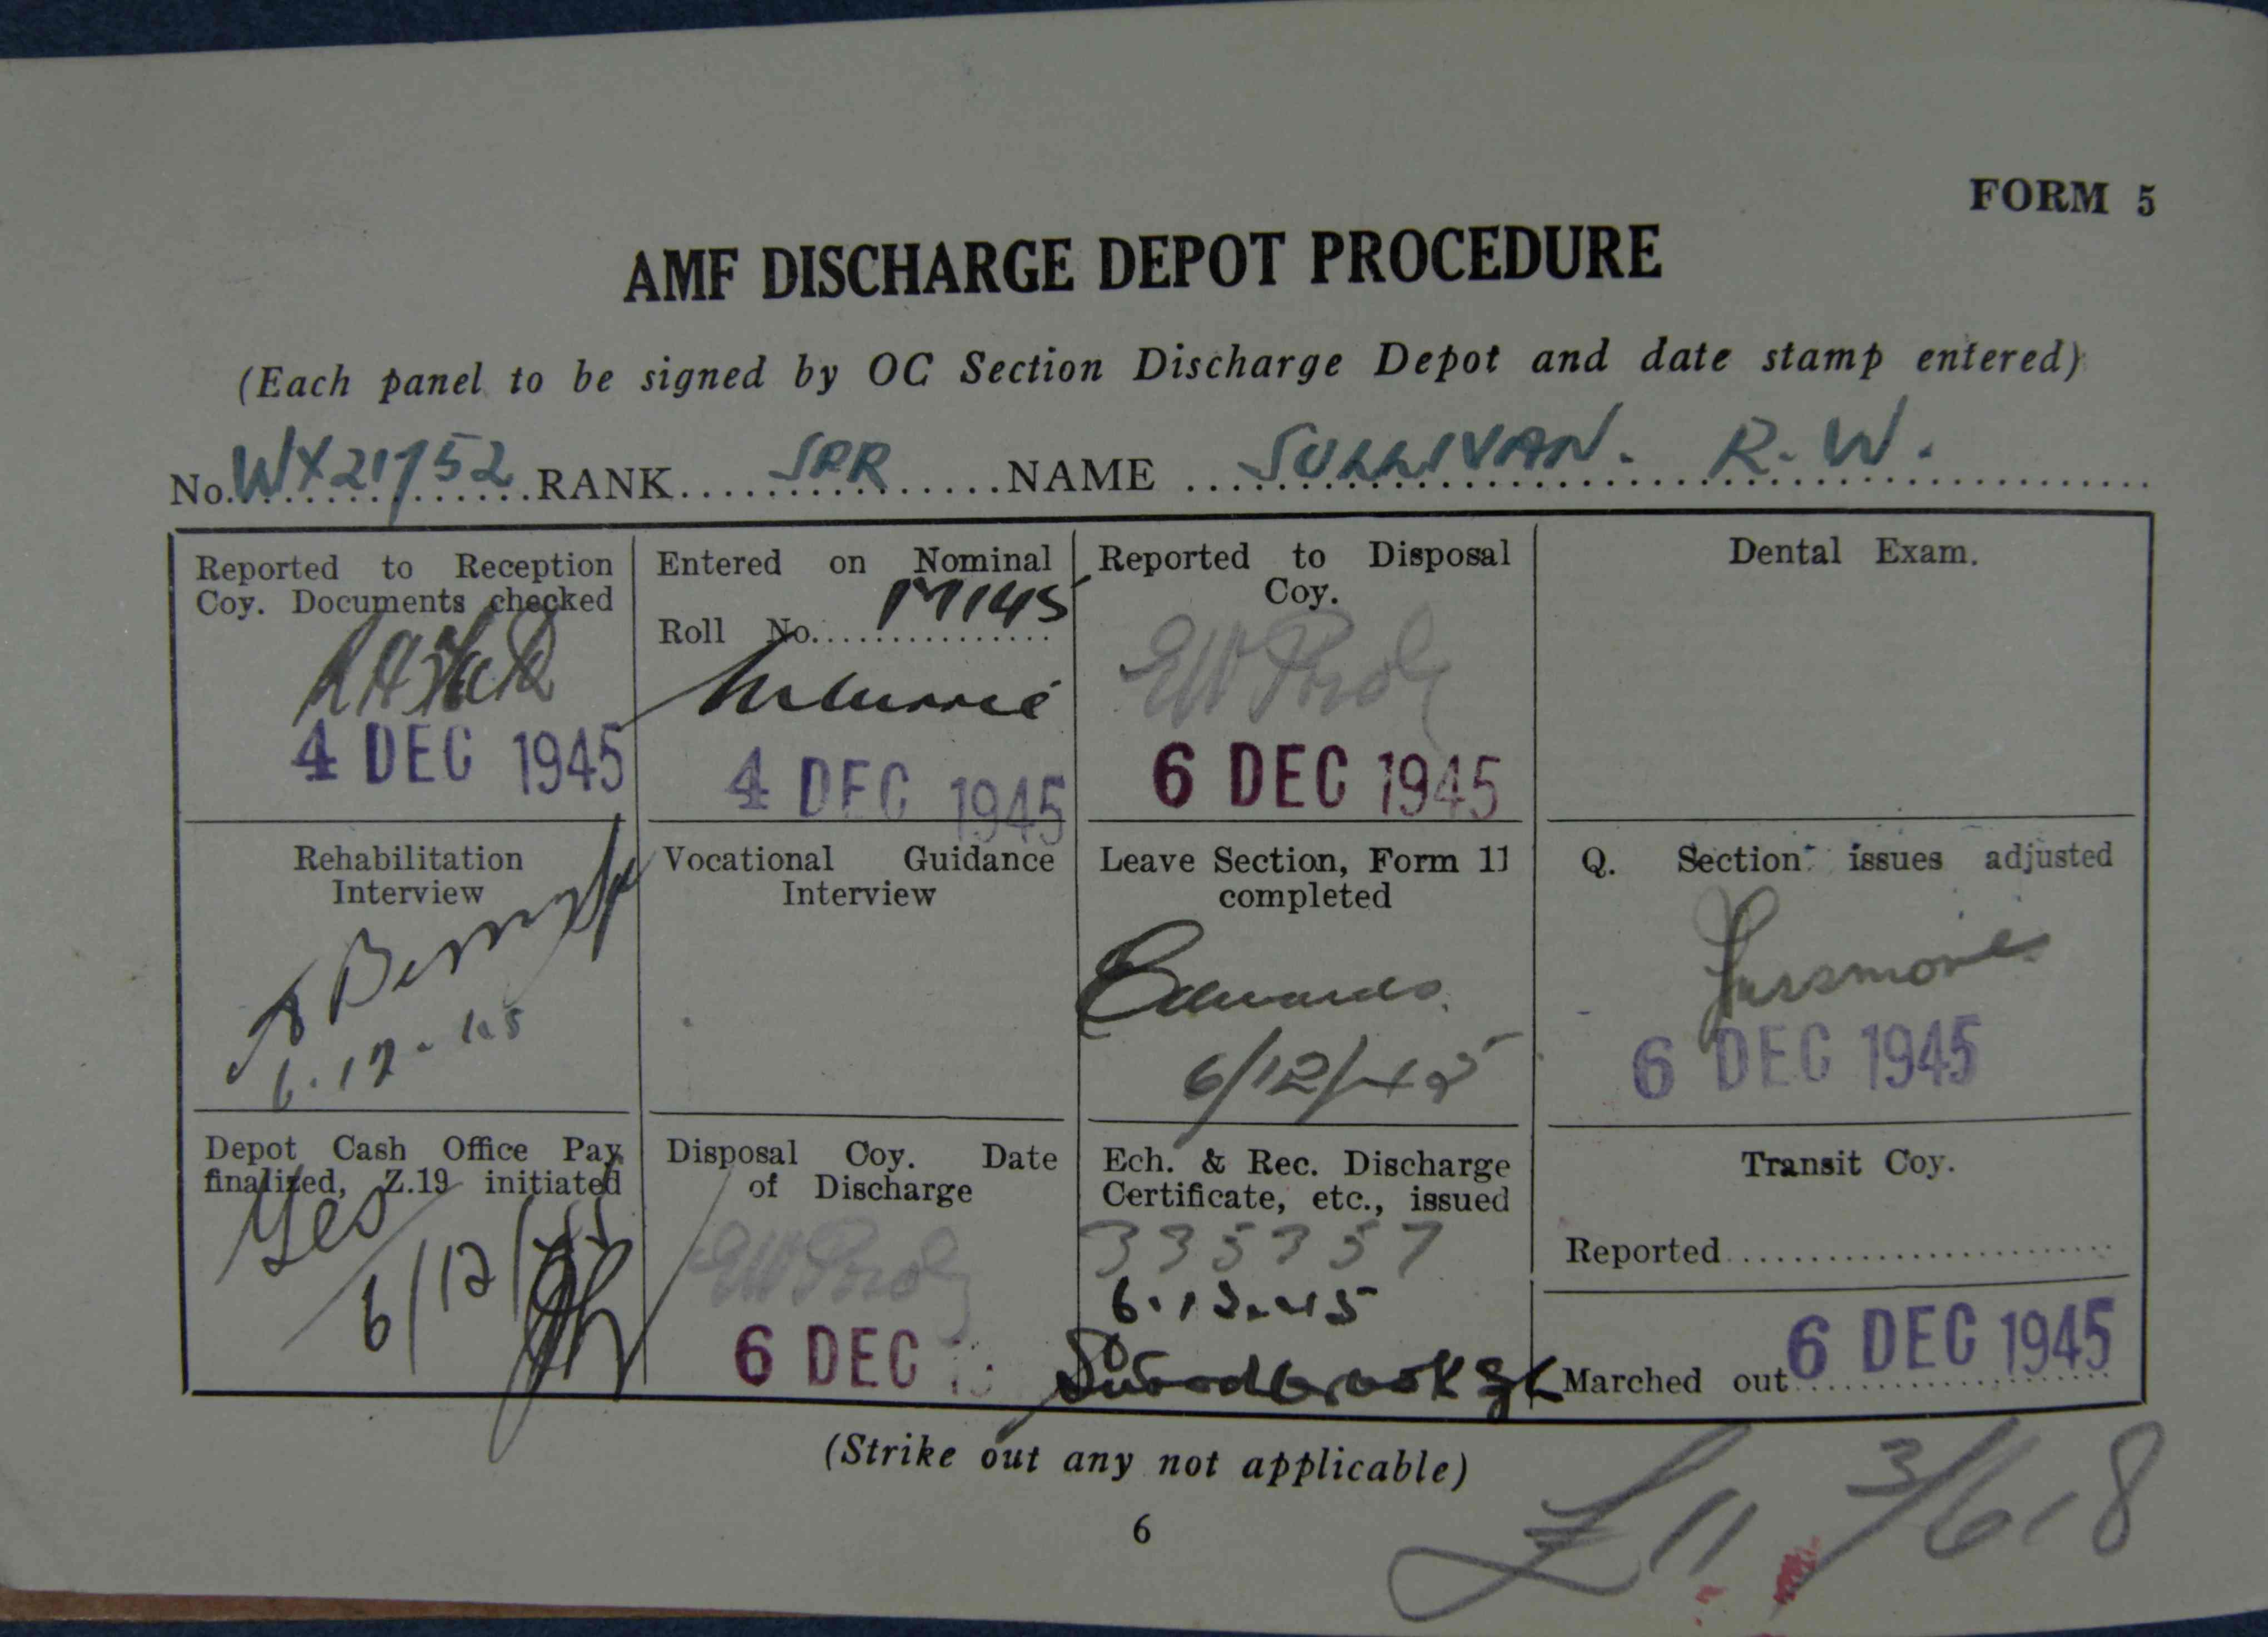 FORM 5
AMF DISCHARGE DEPOT PROCEDURE
(Each panel to be signed by OC Section Discharge Depot and date stamp entered)
No. WX21752 RANK SPR NAME SULLIVAN. R. W.
Reported to Reception
Coy. Documents checked
4 DEC 1945
Entered on Nominal
Roll No. M145
4 DEC 1945
Reported to Disposal
Coy.
6 DEC 1945
Dental Exam.
Rehabilitation
Interview
6.12.45
Vocational Guidance
Interview
Leave Section, Form 11
completed
Edwards.
6/12/45
Q. Section issues adjusted
6 DEC 1945
Depot Cash Office Pay
finalized, Z.19 initiated
Yes
6/12/45
Disposal Coy. Date
of Discharge
6 DEC
Ech. & Rec. Discharge
Certificate, etc., issued
335357
6.12.45
Transit Coy.
Reported
Marched out 6 DEC 1945
(Strike out any not applicable)
6